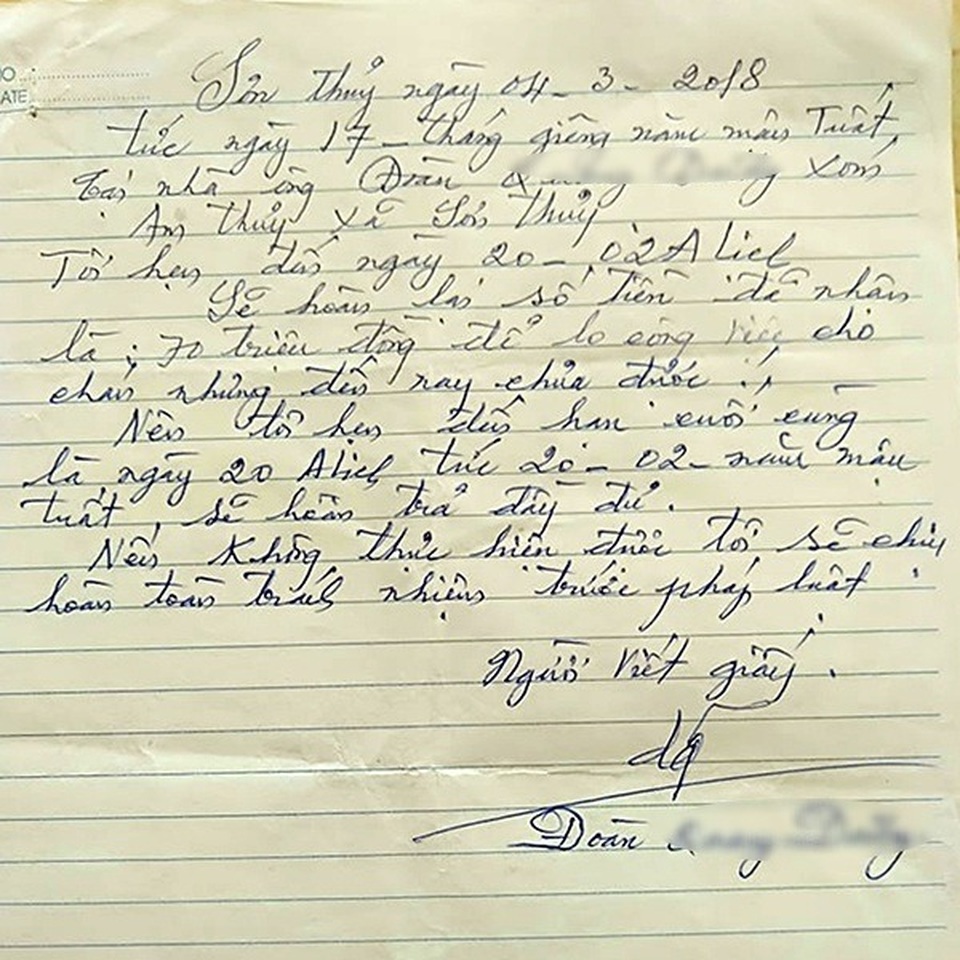 NO
DATE
Sơn thuỷ ngày 04 - 3 - 2018
tức ngày 17 - tháng giêng năm mậu Tuất,
Tại nhà ông Đoàn xóm
Am thuỷ xã Sơn thuỷ
Tôi hẹn đến ngày 20 - 02 A lịch
Sẽ hoàn lại số tiền đã nhận
là ; 70 triệu đồng để lo công việc cho
cháu nhưng đến nay chưa được !,
Nên tôi hẹn đến hạn cuối cùng
là ngày 20 A lịch, tức 20 - 02 - năm mậu
tuất, sẽ hoàn trả đầy đủ.
Nếu không thực hiện được tôi sẽ chịu
hoàn toàn trách nhiệm trước pháp luật.
Người viết giấy.
Đoàn